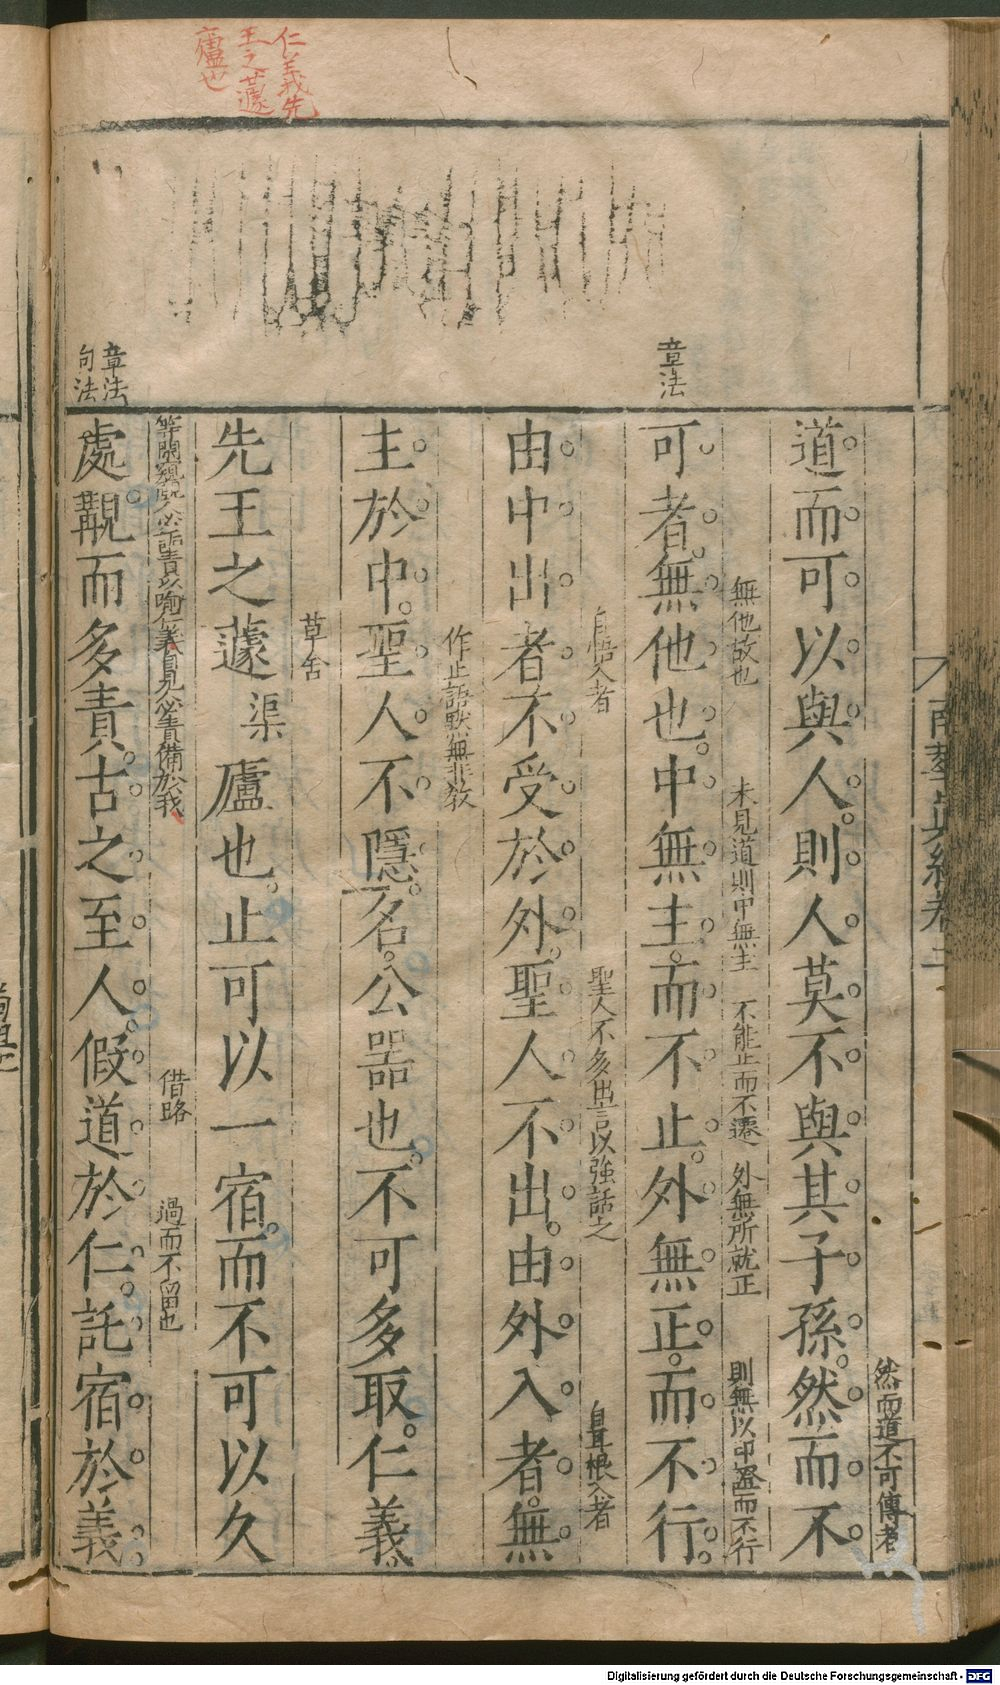 仁義先
王之蘧
廬也
章法
章法
句法
南華眞經卷三
然而道不可傳者
道而可以與人則人莫不與其子孫然而不
無他故也 未見道則中無主 不能止而不遷 外無所就正 則無以印證而不行
可者無他也中無主而不止外無正而不行
自悟入者 聖人不多出言以強話之 自耳根入者
由中出者不受於外聖人不出由外入者無
作止語默無非教
主於中聖人不隱名公器也不可多取仁義
草舍
先王之蘧渠廬也止可以一宿而不可以久
等閒窺覷人必詬責以喻仁義自見必責備於我 借路 過而不留也
處覯而多責古之至人假道於仁託宿於義
Digitalisierung gefördert durch die Deutsche Forschungsgemeinschaft - DFG